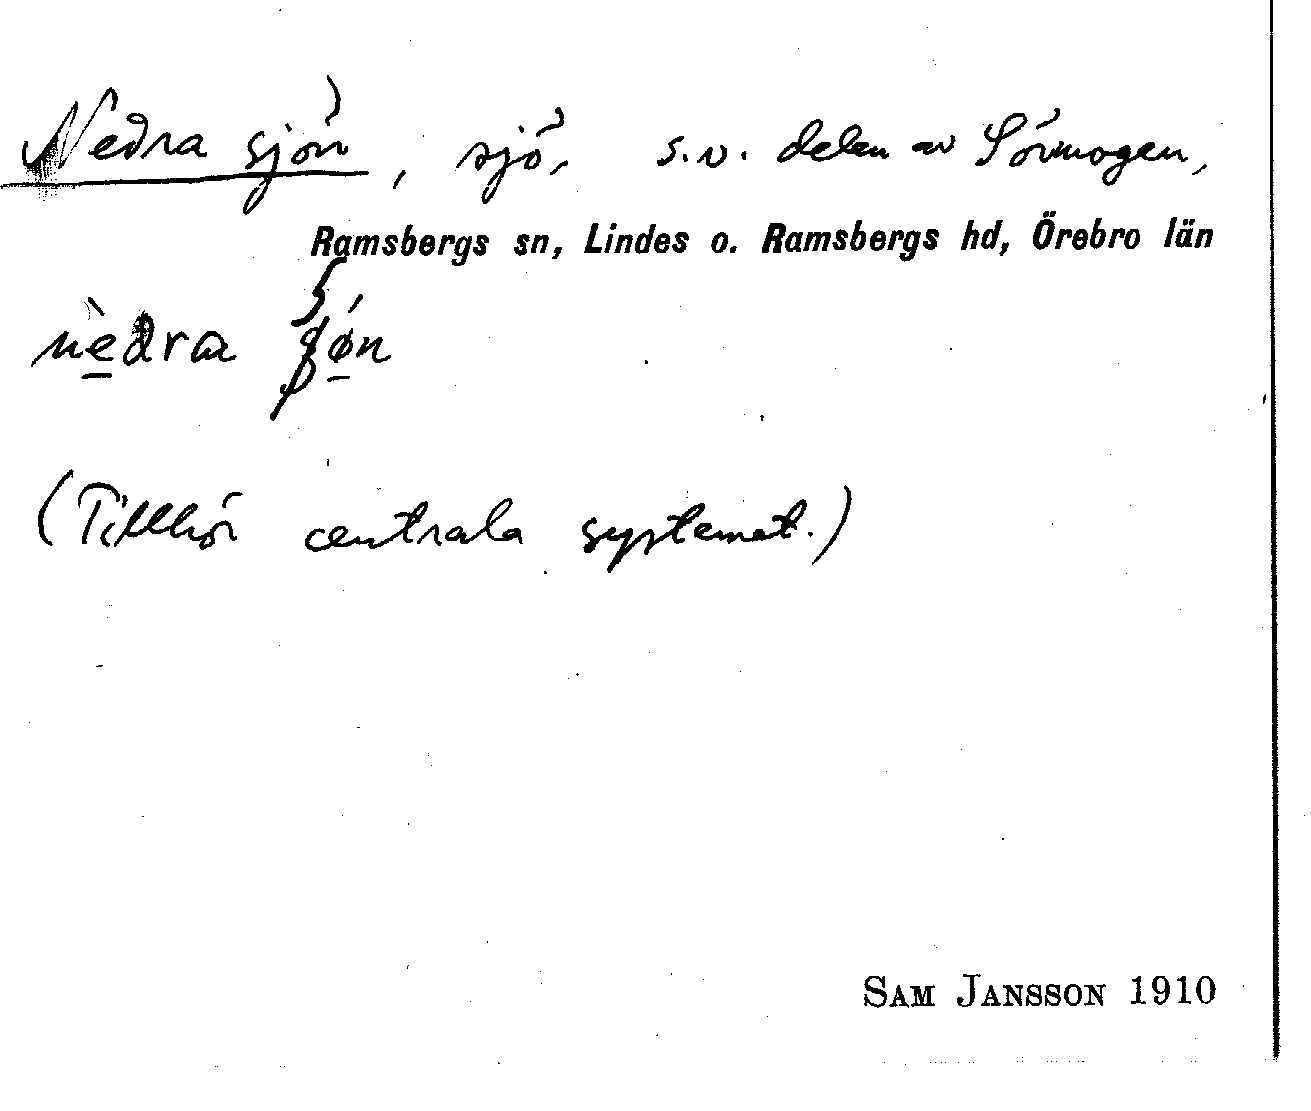 Nedra sjön, sjö, s.v. delen av Sörmogen,
Ramsbergs sn, Lindes o. Ramsbergs hd, Örebro län
nèdra
(Tillhör centrala systemet.)
SAM JANSSON 1910